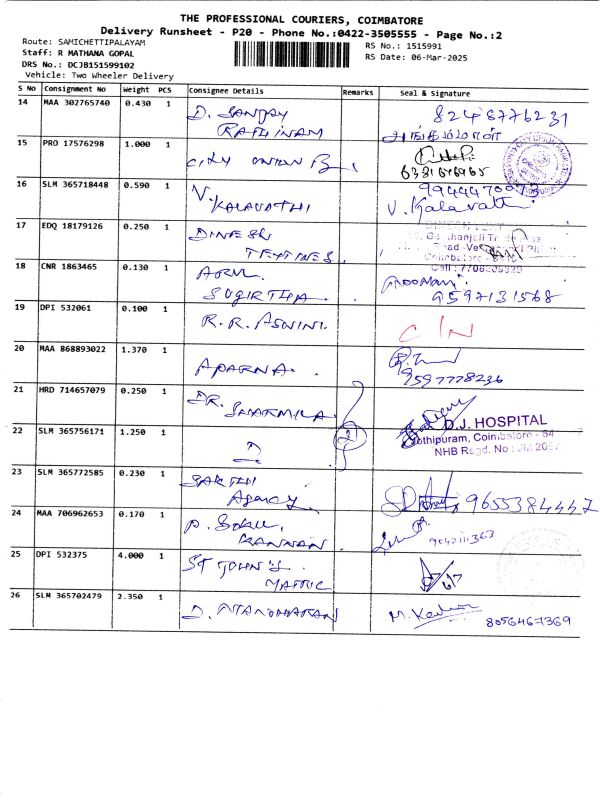 THE PROFESSIONAL COURIERS, COIMBATORE
Delivery Runsheet - P20 - Phone No.:0422-3505555 - Page No.:2
Route: SAMICHETTIPALAYAM
RS No.: 1515991
Staff: R MATHANA GOPAL
RS Date: 06-Mar-2025
DRS No.: DCJB151599102
Vehicle: Two Wheeler Delivery
S No Consignment No Weight PCS Consignee Details Remarks Seal & Signature
14 MAA 302765740 0.430 1 D. SANJAY 8248776231
RATHINAM
15 PRO 17576298 1.000 1 CITY UNION B 6381696965
16 SLM 365718448 0.590 1 V. 9944470073
KALAVATHI V. Kalavathi
17 EDQ 18179126 0.250 1 DINESH
TEXTINES
18 CNR 1863465 0.130 1 ARUL
SUGIRTHA 9597131568
19 DPI 532061 0.100 1 R.R. ASWINI. C/N
20 MAA 868893022 1.370 1 APARNA. 9597778236
21 HRD 714657079 0.250 1 DR.
SHARMILA D.J. HOSPITAL
22 SLM 365756171 1.250 1 2 Jothipuram, Coimbatore - 64
NHB Regd. No
23 SLM 365772585 0.230 1 SAKTHI
Agency 9655384447
24 MAA 706962653 0.170 1 P.
KANNAN 9042111363
25 DPI 532375 4.000 1 ST JOHN'S
MATRIC
26 SLM 365702479 2.350 1 D. MANOHARAN 8056467369